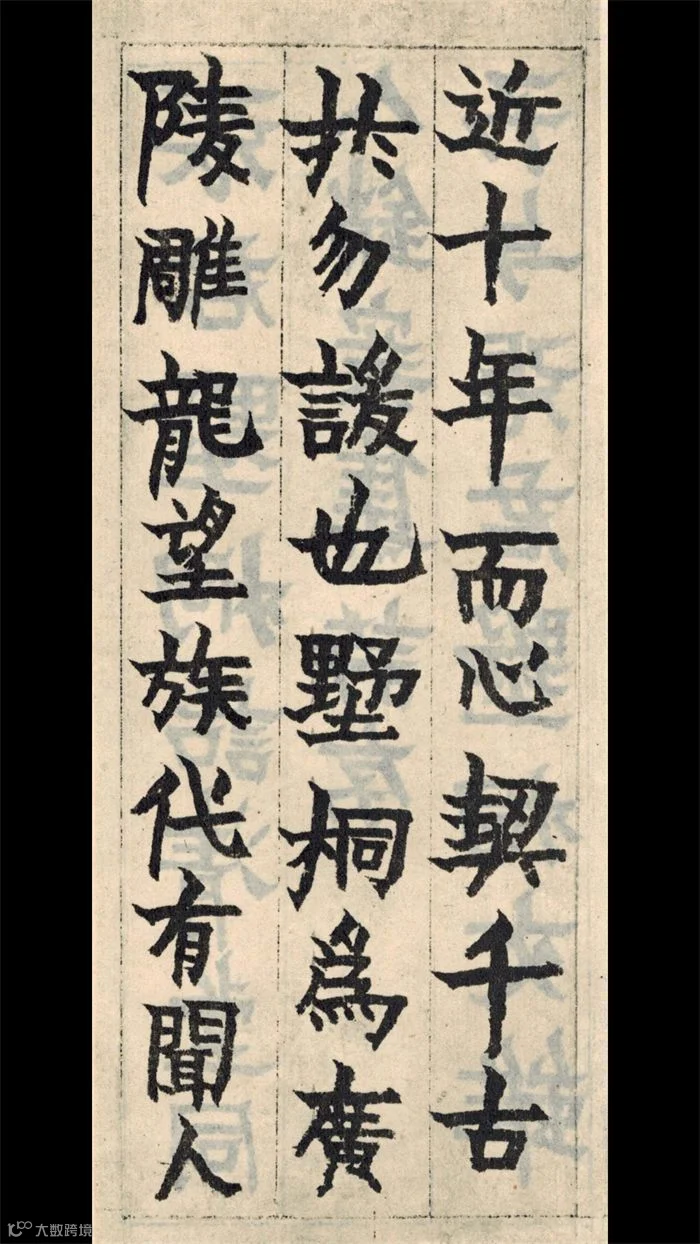 近十年而心契千古
於勿諼也墅桐爲廣
陵雕龍望族代有聞人
大数跨境